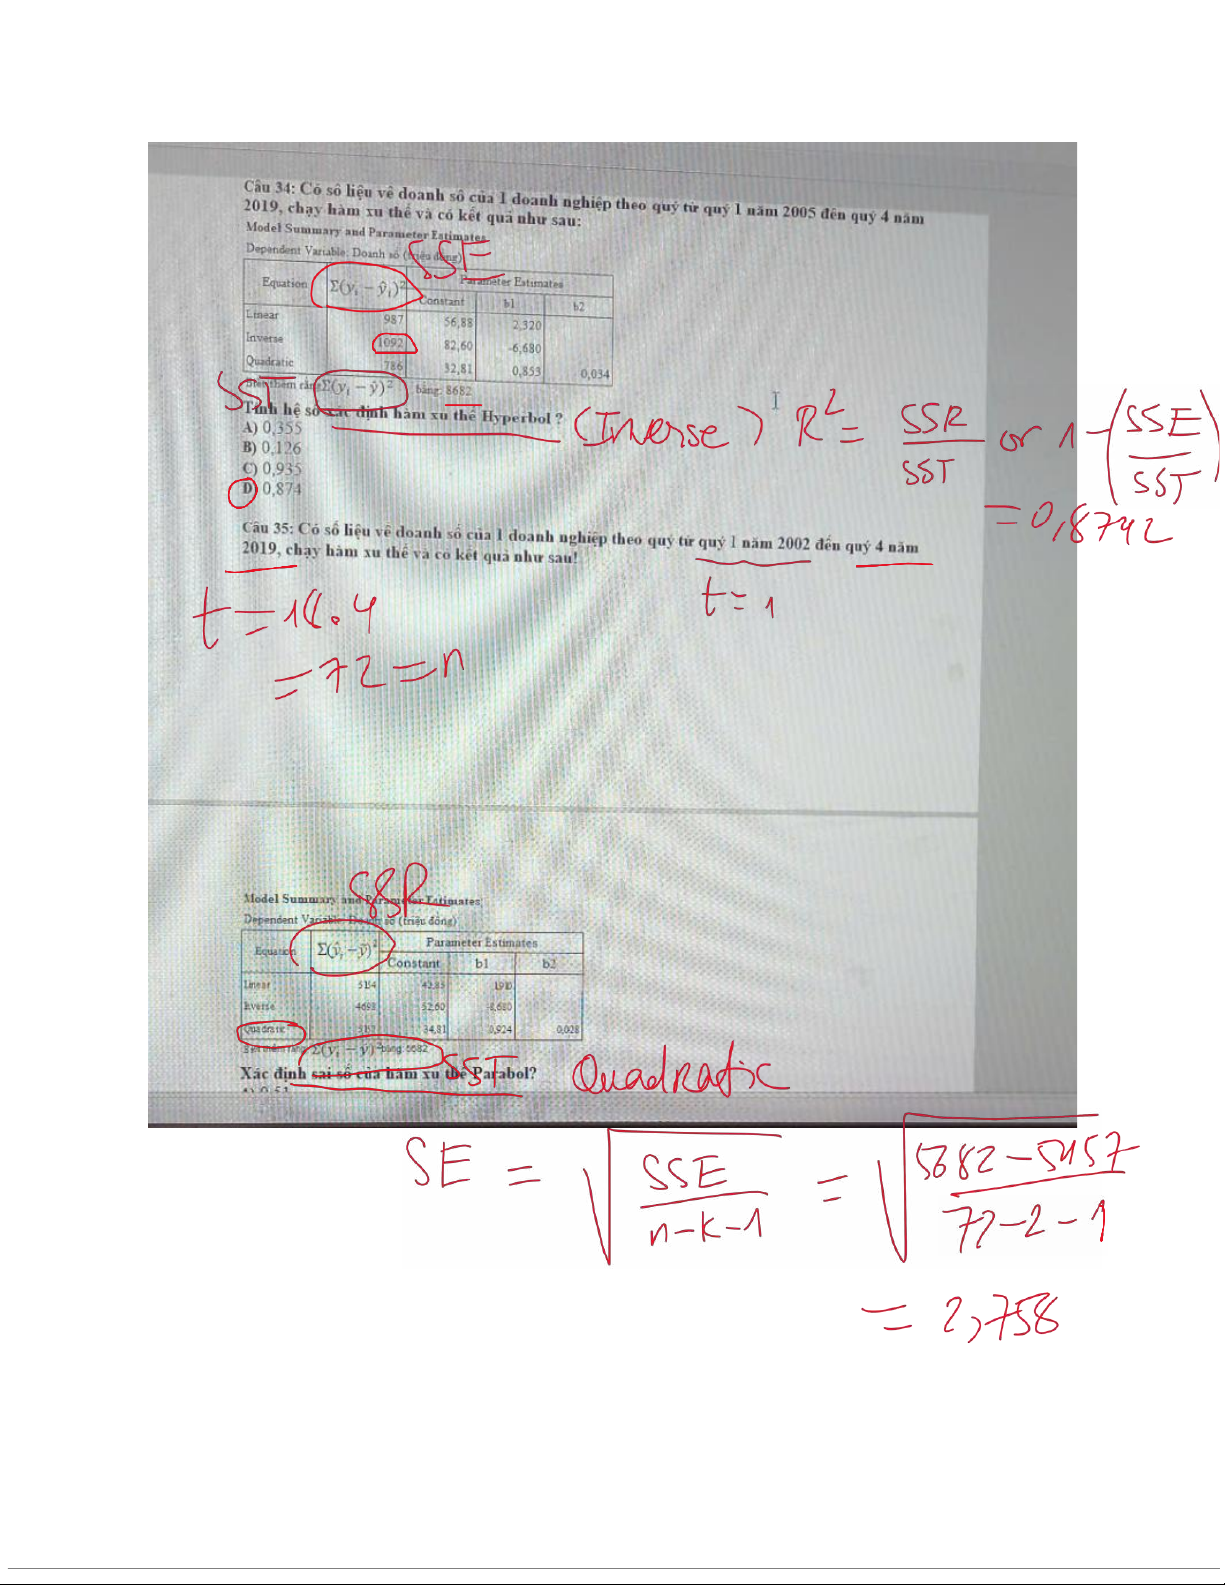 Câu 34: Có số liệu về doanh số của 1 doanh nghiệp theo quý từ quý 1 năm 2005 đến quý 4 năm
2019, chạy hàm xu thế và có kết quả như sau:
Model Summary and Parameter Estimates
SSE
Dependent Variable: Doanh số (triệu đồng)
Equation Σ(yᵢ − ŷᵢ)² Parameter Estimates
Constant b1 b2
Linear 987 56,88 2,320
Inverse 1092 82,60 -6,680
Quadratic 786 32,81 0,853 0,034
SST
Biết thêm rằng Σ(yᵢ − ȳ)² bằng: 8682
Tính hệ số xác định hàm xu thế Hyperbol ?
(Inverse) R² = SSR/SST or 1 − (SSE/SST)
= 0,8742
A) 0,355
B) 0,126
C) 0,935
D) 0,874
Câu 35: Có số liệu về doanh số của 1 doanh nghiệp theo quý từ quý 1 năm 2002 đến quý 4 năm
2019, chạy hàm xu thế và có kết quả như sau!
t = 18.4
t = 1
= 72 = n
SSR
Model Summary and Parameter Estimates
Dependent Variable: Doanh số (triệu đồng)
Equation Σ(ŷᵢ − ȳ)² Parameter Estimates
Constant b1 b2
Linear
Inverse 52,60 -8,680
Quadratic 34,81 0,924 0,028
Biết thêm rằng Σ(yᵢ − ȳ)² bằng: 5682
SST
Xác định sai số của hàm xu thế Parabol?
Quadratic
SE = √(SSE/(n−k−1)) = √((5682−5157)/(72−2−1))
= 2,758